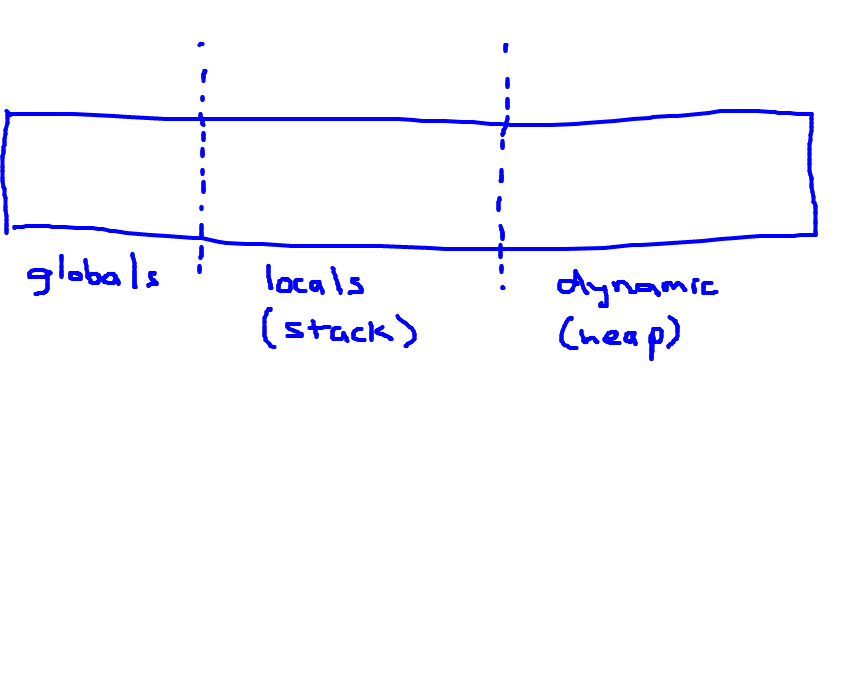 globals
locals
(stack)
dynamic
(heap)